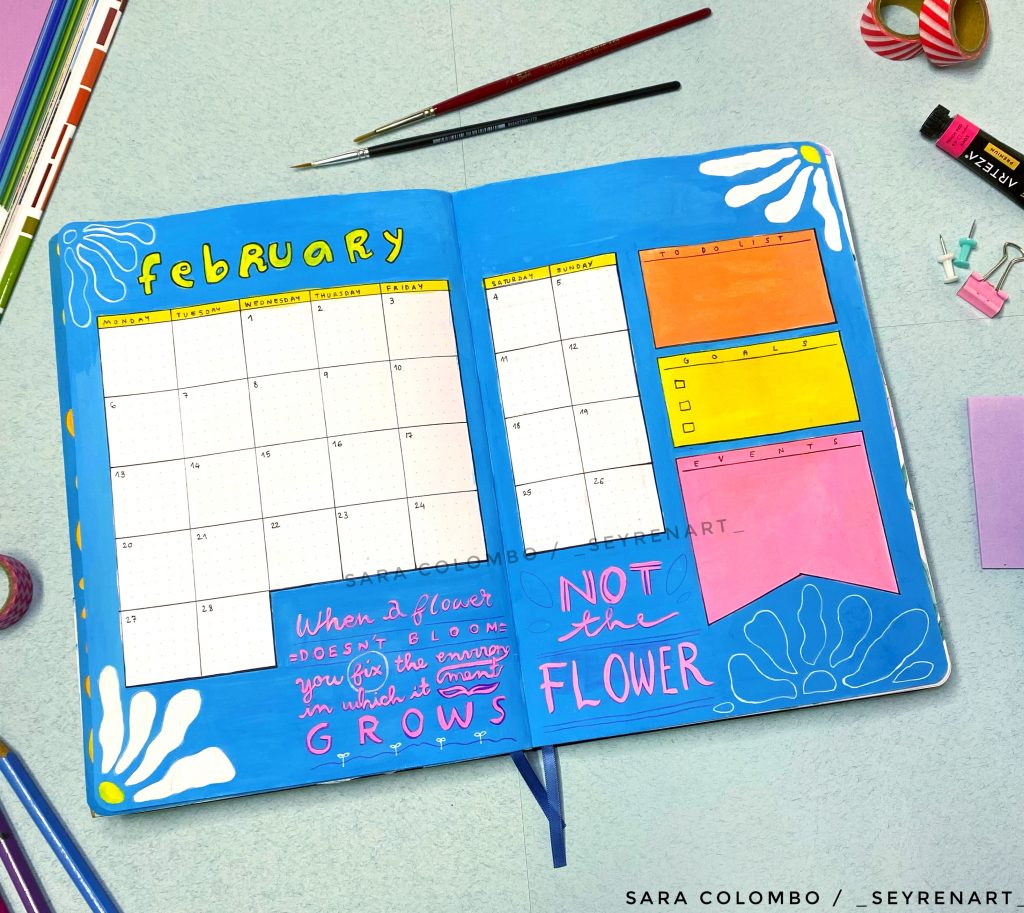 febRuaRy
MONDAY TUESDAY WEDNESDAY THURSDAY FRIDAY
1 2 3
6 7 8 9 10
13 14 15 16 17
20 21 22 23 24
27 28
When a flower
=DOESN'T BLOOM=
you fix the enviro
in which it (nment
GROWS
SATURDAY SUNDAY
4 5
11 12
18 19
25 26
TO DO LIST
GOALS
EVENTS
NOT
the
FLOWER
SARA COLOMBO / _SEYRENART_
ARTEZA
PREMIUM
SARA COLOMBO / _SEYRENART_